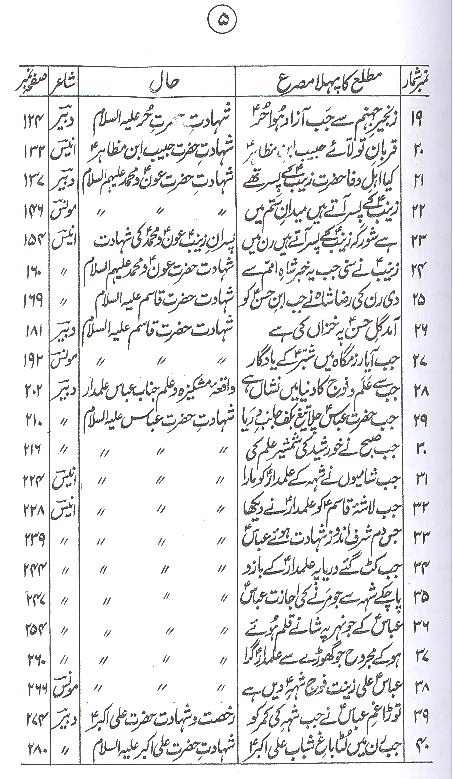 ۵
نمبرشمار مطلع کا پہلا مصرع حال شاعر صفحہ نمبر
۱۹ زنجیرِ جہنم سے جب آزاد ہوا حُرؑ شہادتِ حضرت حُر علیہ السلام دبیر ۱۲۴
۲۰ قربان تو لائے حبیب ابن مظاہرؑ شہادت حضرت حبیب ابن مظاہرؑ انیس ۱۳۲
۲۱ کیا اہلِ وفا حضرت زینبؑ کے پسر تھے شہادت حضرت عونؑ و محمد علیہم السلام دبیر ۱۳۷
۲۲ زینبؑ کے پسر آتے ہیں میدانِ ستم میں 〃 〃 مونس ۱۴۶
۲۳ ہے شور کہ زینبؑ کے پسر آتے ہیں رن میں پسرانِ زینبؑ عونؑ و محمدؑ کی شہادت انیس ۱۵۴
۲۴ زینبؑ نے سنی جب یہ خبر شاہِ امم سے شہادت حضرت عونؑ و محمد علیہم السلام 〃 ۱۶۰
۲۵ دی رن کی رضا شاہ نے جب ابن حسنؑ کو شہادت حضرت قاسم علیہ السلام 〃 ۱۶۹
۲۶ آمد گلِ حسنؑ پہ خزاں کی ہے شہادت حضرت قاسم علیہ السلام دبیر ۱۸۱
۲۷ جب آیا رزمگاہ میں شبرؑ کے یادگار 〃 〃 مونس ۱۹۲
۲۸ جب سے علم و فوج کا دنیا میں نشاں ہے واقعۂ مشکیزہ و علم جناب عباس علمدار دبیر ۲۰۲
۲۹ جب حضرت عباسؑ چلے تیغ بکف جانب دریا شہادت حضرت عباس علیہ السلام 〃 ۲۱۰
۳۰ جب صبح نے خورشید کی شمشیر علم کی 〃 〃 〃 ۲۱۶
۳۱ جب شامیوں نے شہہ کے علمدارؑ کو مارا 〃 〃 انیس ۲۲۴
۳۲ جب لاشۂ قاسمؑ کو علمدارؑ نے دیکھا 〃 〃 انیس ۲۲۸
۳۳ جس دم شرف اندوزِ شہادت ہوئے عباسؑ 〃 〃 〃 ۲۳۹
۳۴ جب کٹ گئے دریا پہ علمدارؑ کے بازو 〃 〃 〃 ۲۴۴
۳۵ پا چکے شہہ سے جو مرنے کی اجازت عباسؑ 〃 〃 〃 ۲۴۷
۳۶ عباسؑ کے جو نہر پہ شانے قلم ہوئے 〃 〃 〃 ۲۵۴
۳۷ ہو کے مجروح جو گھوڑے سے علمدارؑ گرا 〃 〃 〃 ۲۶۰
۳۸ عباسؑ علی زینت فوج شہہِ دیں ہے 〃 〃 مونس ۲۶۶
۳۹ توڑا غمِ عباسؑ نے جب شہہ کی کمر کو رخصت و شہادت حضرت علی اکبرؑ دبیر ۲۷۴
۴۰ جب رن میں لٹا باغ شباب علی اکبرؑ شہادت حضرت علی اکبر علیہ السلام 〃 ۲۸۰